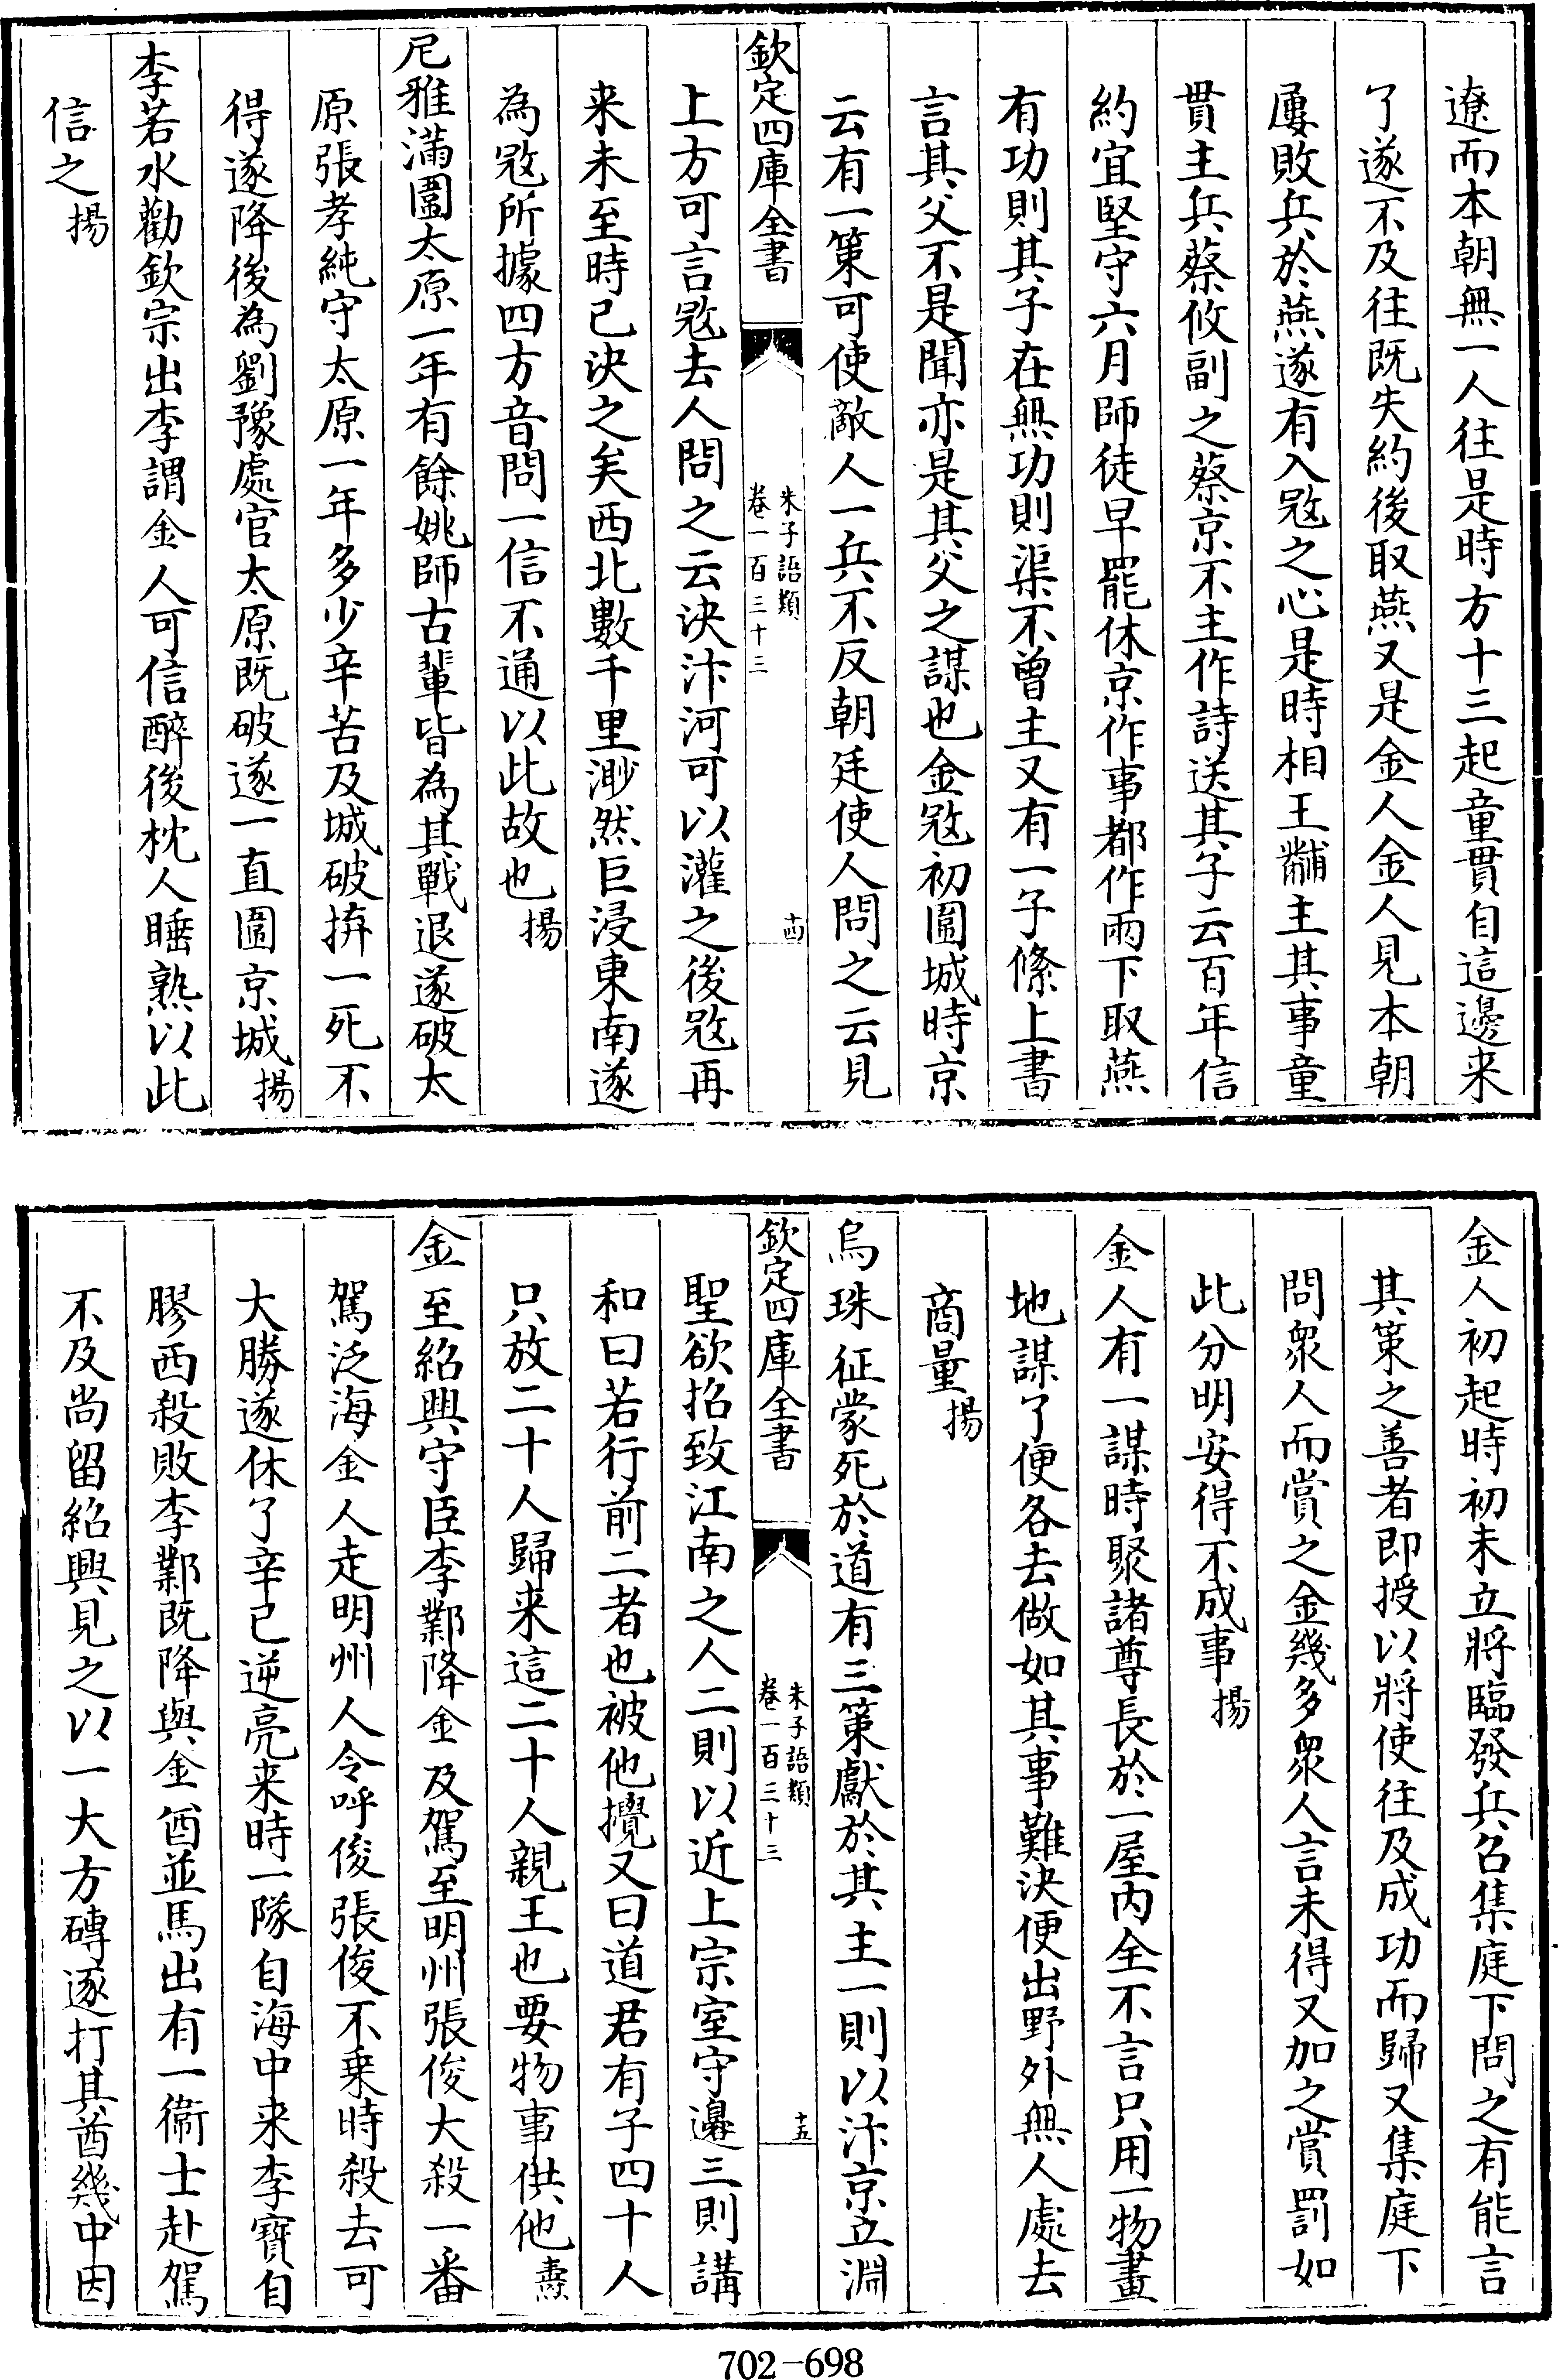 遼而本朝無一人往是時方十三起童貫自這邊来
了遂不及往既失約後取燕又是金人金人見本朝
屢敗兵於燕遂有入㓂之心是時相王黼主其事童
貫主兵蔡攸副之蔡京不主作詩送其子云百年信
約宜堅守六月師徒早罷休京作事都作兩下取燕
有功則其子在無功則渠不曾主又有一子絛上書
言其父不是聞亦是其父之謀也金㓂初圍城時京
云有一策可使敵人一兵不反朝廷使人問之云見
欽定四庫全書
朱子語類
卷一百三十三
十四
上方可言㓂去人問之云決汴河可以灌之後㓂再
来未至時已決之矣西北數千里渺然巨浸東南遂
為㓂所據四方音問一信不通以此故也揚
尼雅滿圍太原一年有餘姚師古輩皆為其戰退遂破太
原張孝純守太原一年多少辛苦及城破拚一死不
得遂降後為劉豫處官太原既破遂一直圍京城揚
李若水勸欽宗出李謂金人可信醉後枕人睡熟以此
信之揚
金人初起時初未立將臨發兵召集庭下問之有能言
其策之善者即授以將使往及成功而歸又集庭下
問衆人而賞之金幾多衆人言未得又加之賞罰如
此分明安得不成事揚
金人有一謀時聚諸尊長於一屋内全不言只用一物畫
地謀了便各去做如其事難決便出野外無人處去
商量揚
烏珠征蒙死於道有三策獻於其主一則以汴京立淵
欽定四庫全書
朱子語類
卷一百三十三
十五
聖欲招致江南之人二則以近上宗室守邊三則講
和曰若行前二者也被他攪又曰道君有子四十人
只放二十人歸来這二十人親王也要物事供他燾
金至紹興守臣李鄴降金及駕至明州張俊大殺一番
駕泛海金人走明州人令呼俊張俊不乗時殺去可
大勝遂休了辛巳逆亮来時一隊自海中来李寶自
膠西殺敗李鄴既降與金酋並馬出有一衞士赴駕
不及尚留紹興見之以一大方磚逐打其酋幾中因
702-698